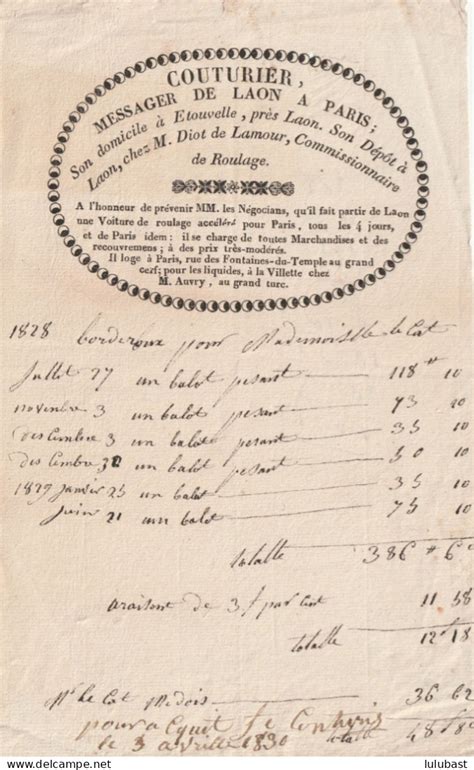 COUTURIER,
MESSAGER DE LAON A PARIS;
Son domicile à Etouvelle, près Laon. Son Dépôt à
Laon, chez M. Diot de Lamour, Commissionnaire
de Roulage.
A l'honneur de prévenir MM. les Négocians, qu'il fait partir de Laon
une Voiture de roulage accéléré pour Paris, tous les 4 jours,
et de Paris idem: il se charge de toutes Marchandises et des
recouvremens; à des prix très-modérés.
Il loge à Paris, rue des Fontaines-du-Temple au grand
cerf; pour les liquides, à la Villette chez
M. Auvry, au grand turc.
1828 borderoux pour Mademoiselle le Cat
Juillot 27 un balot pesant 118 # 10
novenbre 3 un balot pesant 73 10
descembre 3 un balot pesant 35 10
des cembre 32 un balot pesant 50 10
1829 Janvier 25 un balot 35 10
Juin 21 un balot 75 10
totalle 386 # 6
araisont de 3 f par Cent 11 58
totalle 12 18
le Cat me dois 36 62
pour acquit
le 3 avrille 1830 totalle 48 f 80
lulubast